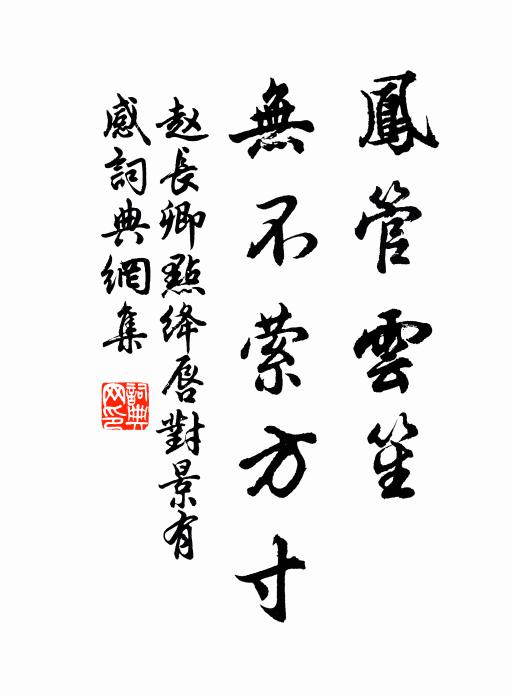 鳳管雲笙
無不萦方寸
赵長卿點绛唇對景有
感詞典網集
詞典
网印